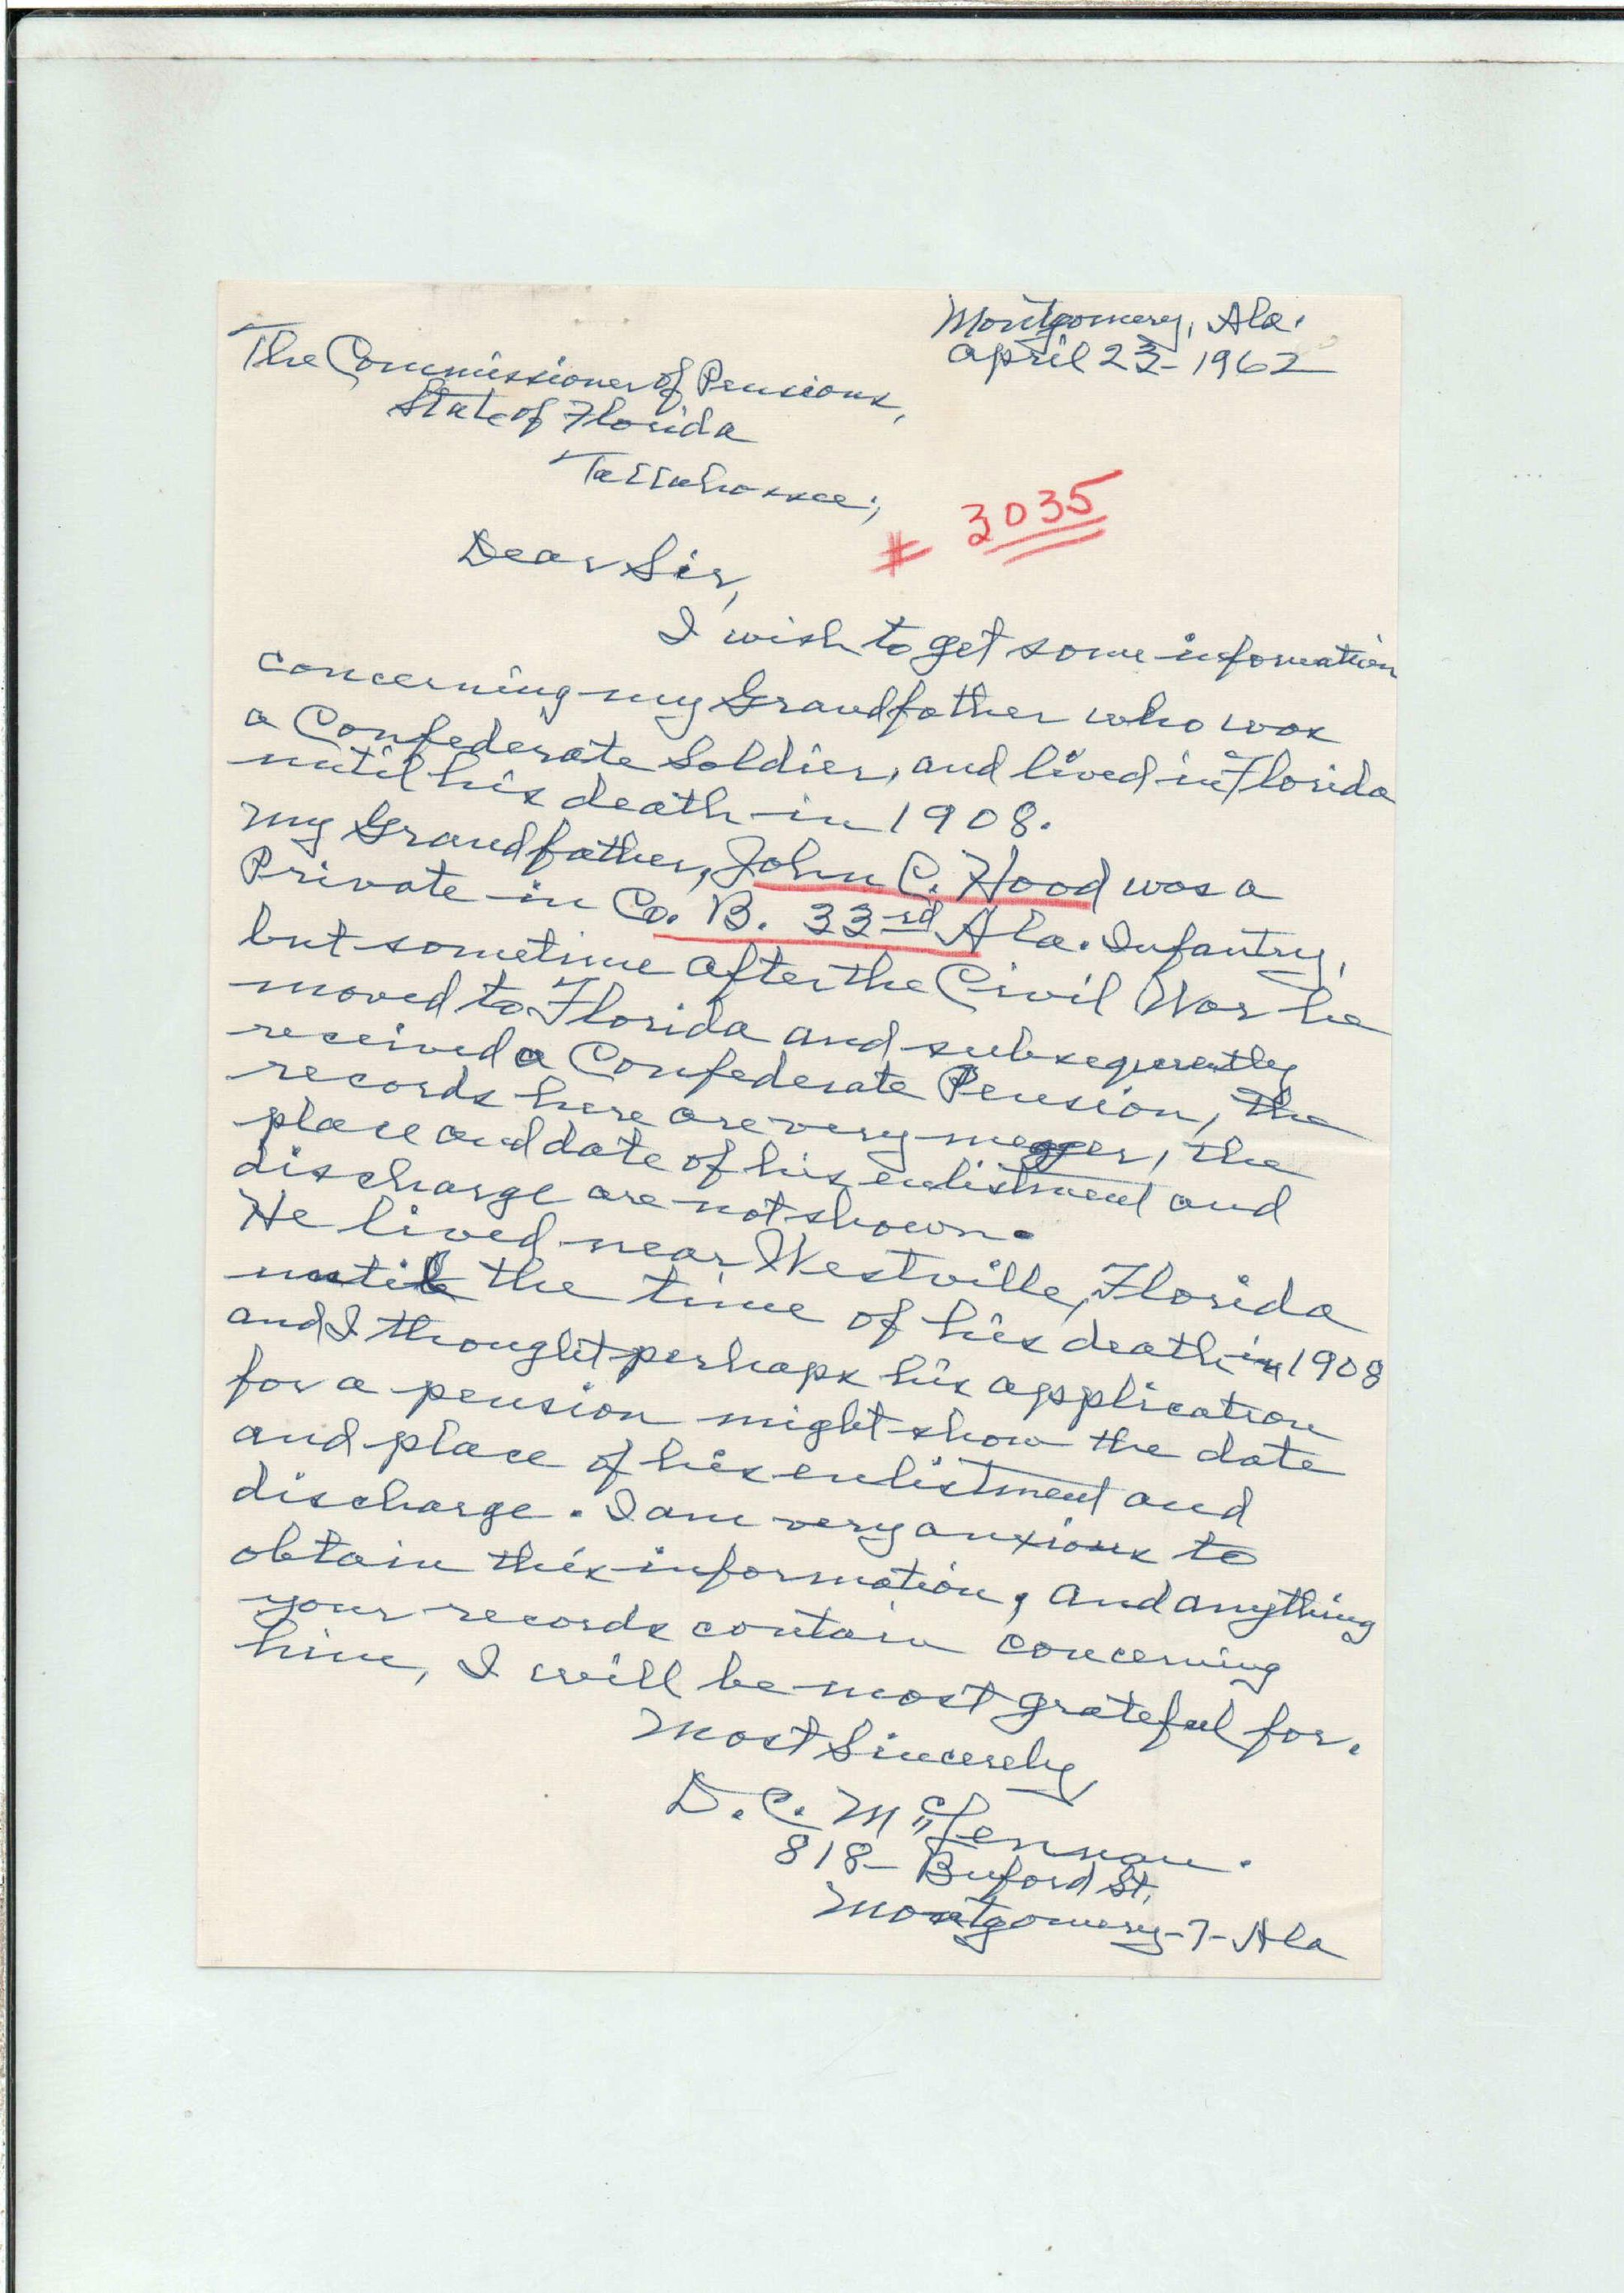 Montgomery, Ala.
April 23-1962
The Commissioner of Pensions,
State of Florida
Tallahassee;
# 3035
Dear Sir,
I wish to get some information
concerning my Grandfather who was
a Confederate Soldier, and lived in Florida
until his death in 1908.
My Grandfather, John C. Hood was a
Private in Co. B. 33rd Ala. Infantry,
but sometime after the Civil War he
moved to Florida and subsequently
received a Confederate Pension, The
records here are very meager, the
place and date of his enlistment and
discharge are not shown.
He lived near Westville, Florida
until the time of his death in 1908
and I thought perhaps his application
for a pension might show the date
and place of his enlistment and
discharge. I am very anxious to
obtain this information, and anything
your records contain concerning
him, I will be most grateful for.
Most Sincerely,
D. C. McLennan.
818- Buford St.
Montgomery-7-Ala